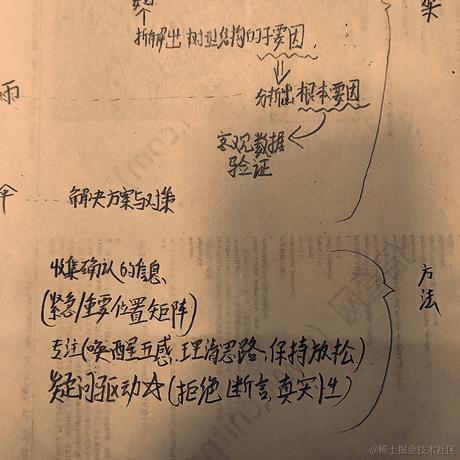 个
拆解出树型结构的子要因
架
雨
分析出根本要因
客观数据
验证
伞
解决方案与对策
收集确认的信息
(紧急/重要位置矩阵)
方法
专注(唤醒五感、理清思路、保持放松)
疑问驱动☆(拒绝断言,真实性)
@稀土掘金技术社区